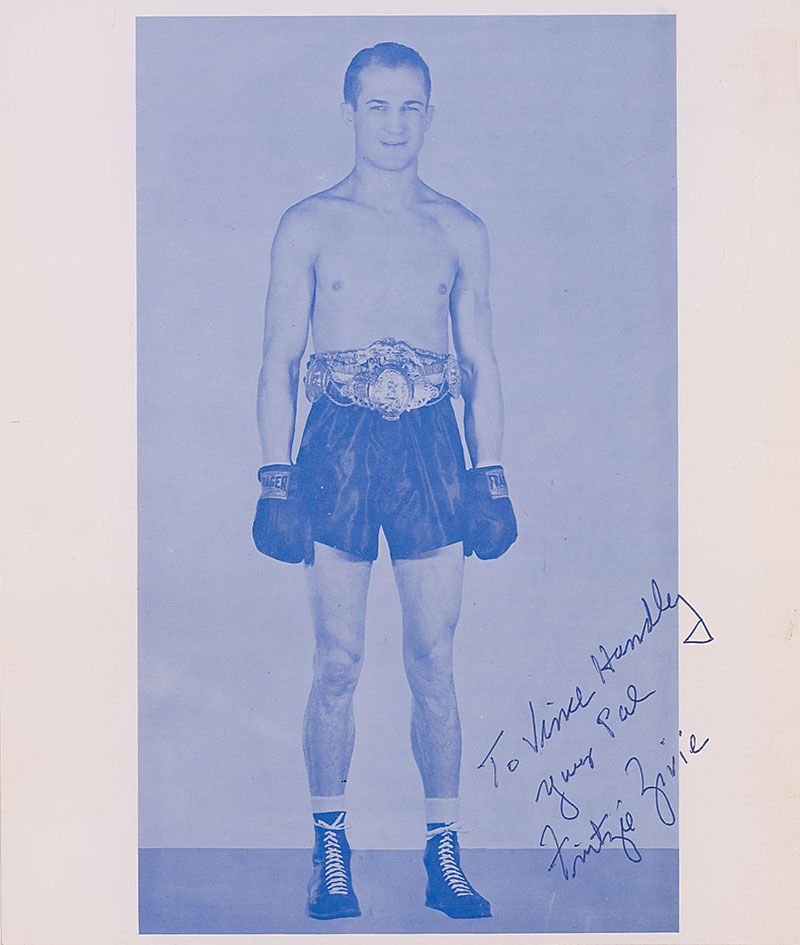 FRAGER
FRA
To Vince Handley
your Pal
Fritzie Zivic